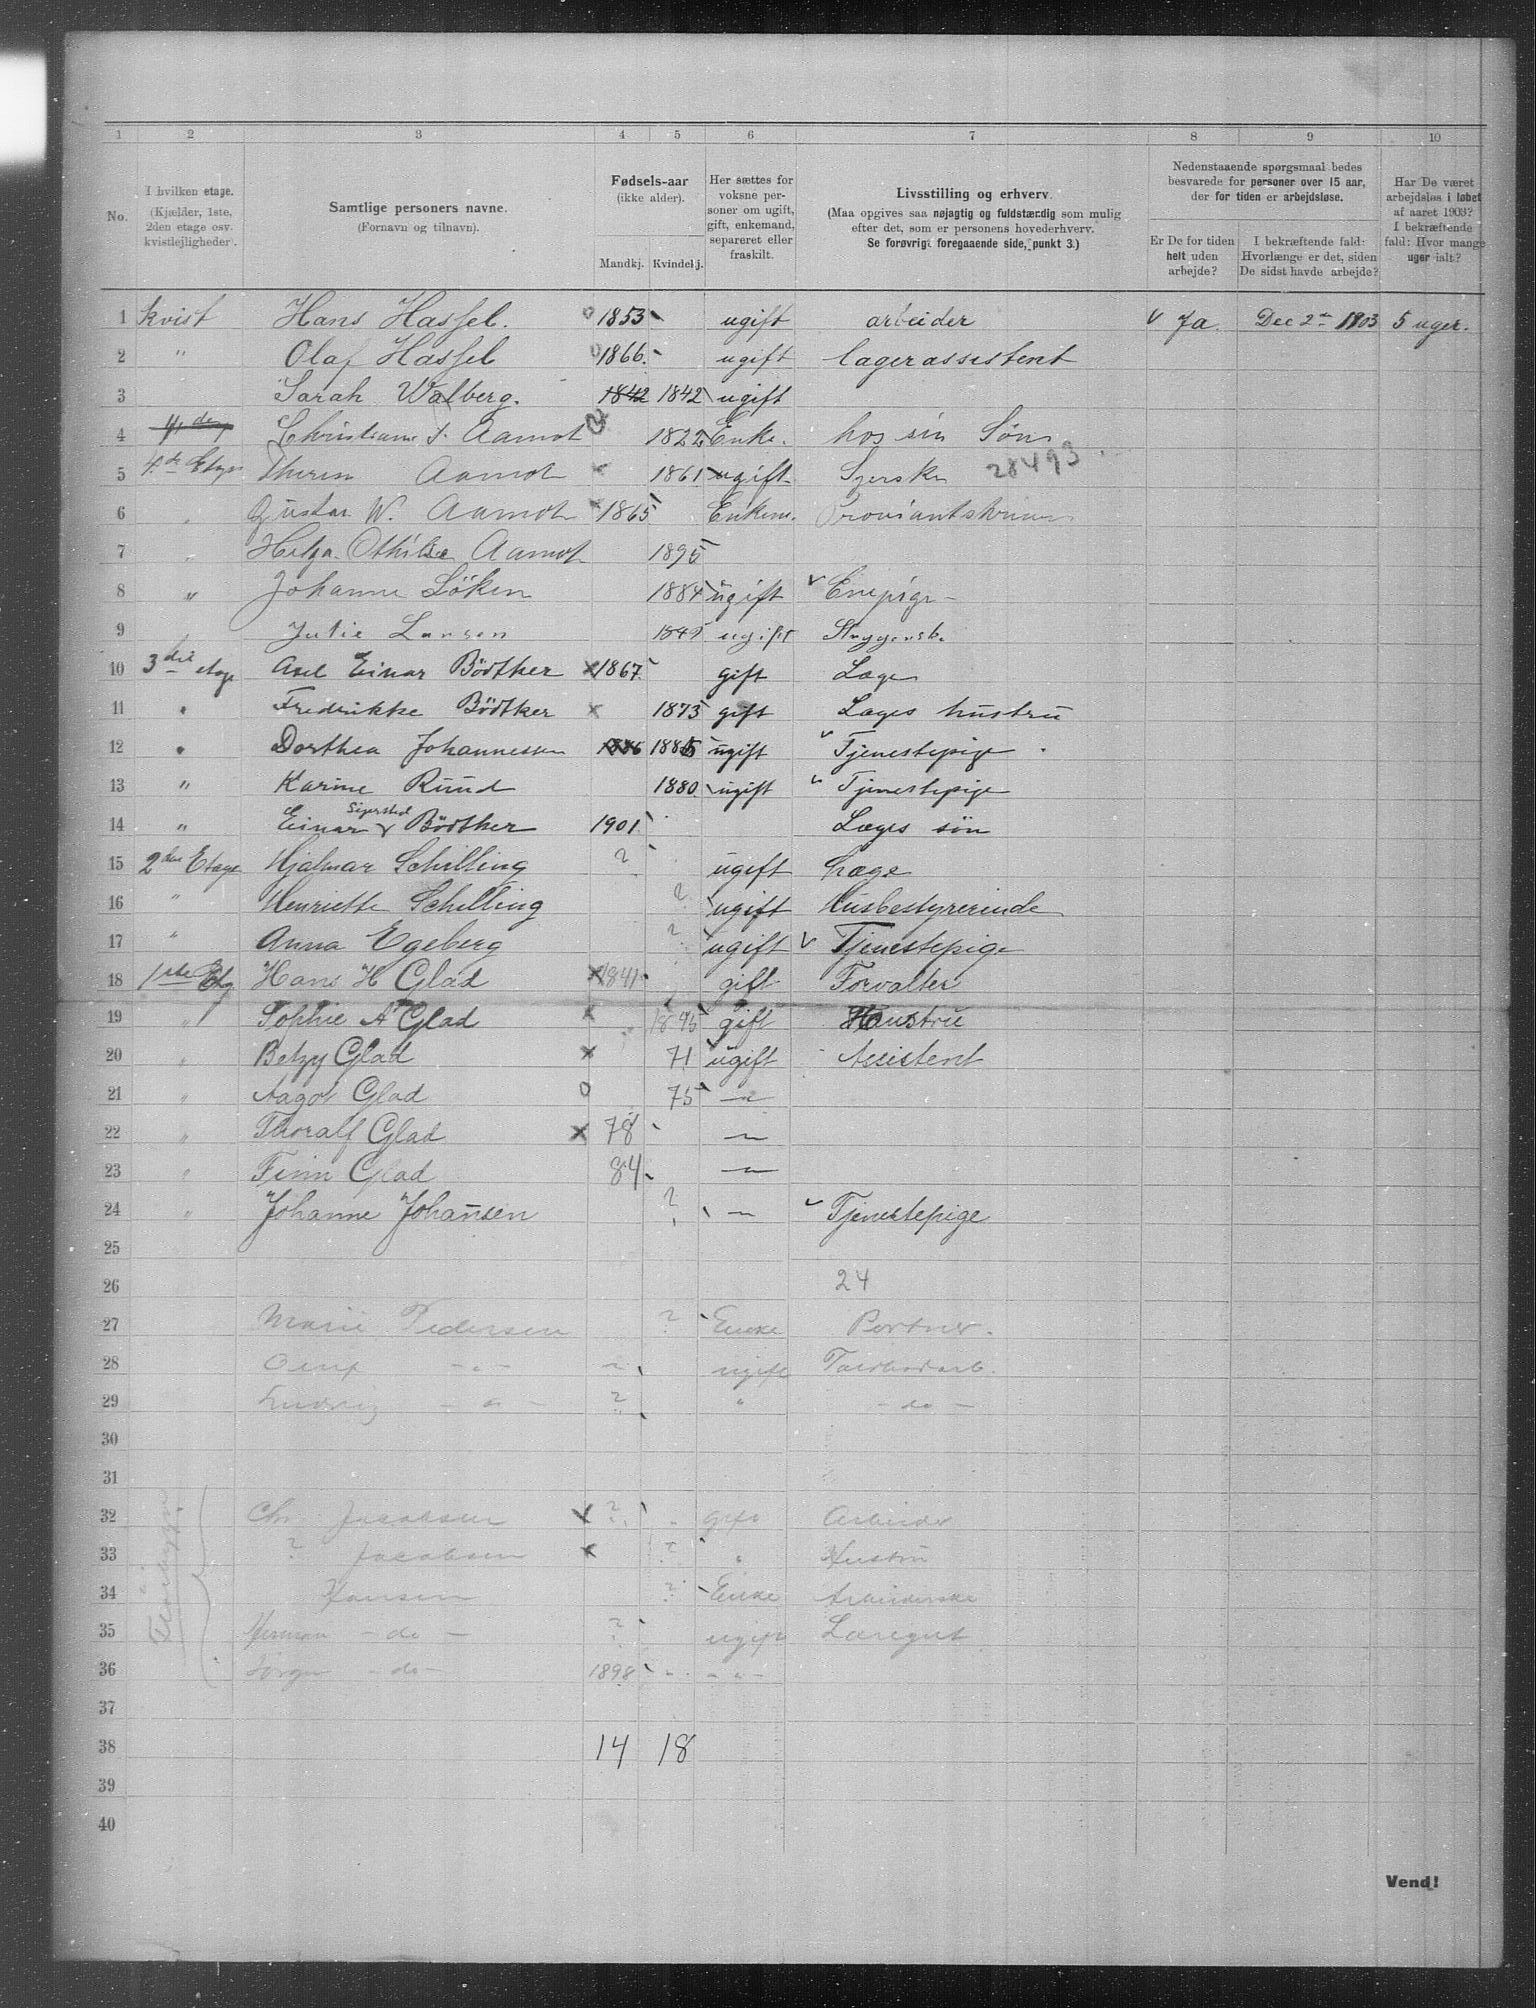 1 2 3 4 5 6 7 8 9 10
No. I hvilken etage. (Kjælder, 1ste, 2den etage osv. kvistlejligheder). Samtlige personers navne. (Fornavn og tilnavn). Fødsels-aar (ikke alder). Mandkj. Kvindekj. Her sættes for voksne personer om ugift, gift, enkemand, separeret eller fraskilt. Livsstilling og erhverv. (Maa opgives saa nøjagtig og fuldstærdig som mulig efter det, som er personens hovederhverv. Se forøvrig foregaaende side, punkt 3.) Nedenstaaende spørgsmaal bedes besvarede for personer over 15 aar, der for tiden er arbejdsløse. Er De for tiden helt uden arbejde? I bekræftende fald: Hvorlænge er det, siden De sidst havde arbejde? Har De været arbejdsløs i løbet af aaret 1903? I bekræftende fald: Hvor mange uger ialt?
1 Kvist Hans Hassel. o 1853 ugift arbeider v Ja Dec 2 1903 5 uger.
2 " Olaf Hassel o 1866. ugift lagerassistent
3 Sarah Walberg. 1842 1842 ugift
4 Christiane Aamot 1822 Enke. hos sin Søn
5 4de Etage Aamot x 1861 ugift Syerske 28493
6 " Gustav W. Aamot x 1865 Enkem.
7 " Helga Othilie Aamot 1895
8 " Johanne Löken 1884 ugift v Enepige
9 Julie Larsen ugift
10 3die etage Axel Einar Bödtker x 1867 gift Læge
11 " Fredrikke Bödtker x 1873 gift Læges hustru
12 " Dorthea Johannessen 1886 ugift v Tjenestepige
13 " Karine Ruud 1880 ugift v Tjenestepige
14 " Einar Sigersted Bödtker 1901 Læges sön
15 2den Etage Hjalmar Schilling ? ugift Læge
16 " Henriette Schilling ? ugift Husbestyrerinde
17 " Anna Egeberg ? ugift v Tjenestepige
18 1ste Etg Hans H Glad x 1841 gift Forvalter
19 " Sophie A Glad x 1845 gift Hustru
20 " Betzy Glad x 71 ugift Assistent
21 " Aagot Glad o 75 — " —
22 " Thoralf Glad x 78 — " —
23 " Finn Glad 84 — " —
24 " Johanne Johansen ? — " — v Tjenestepige
25
26 24
27 Marie Pedersen ? Enke Portner.
28 — " — ugift
29 Ludvig — " — ? " — do —
30
31
32 Chr Jacobsen x ? gift Arbeider
33 ? Jacobsen x ? " Hustru
34 Hansen ? Enke Arbeiderske
35 Herman — do — ? ugift Læregut
36 Jörgen — do — 1898 — " —
37
38 14 18
39
40
Vend!